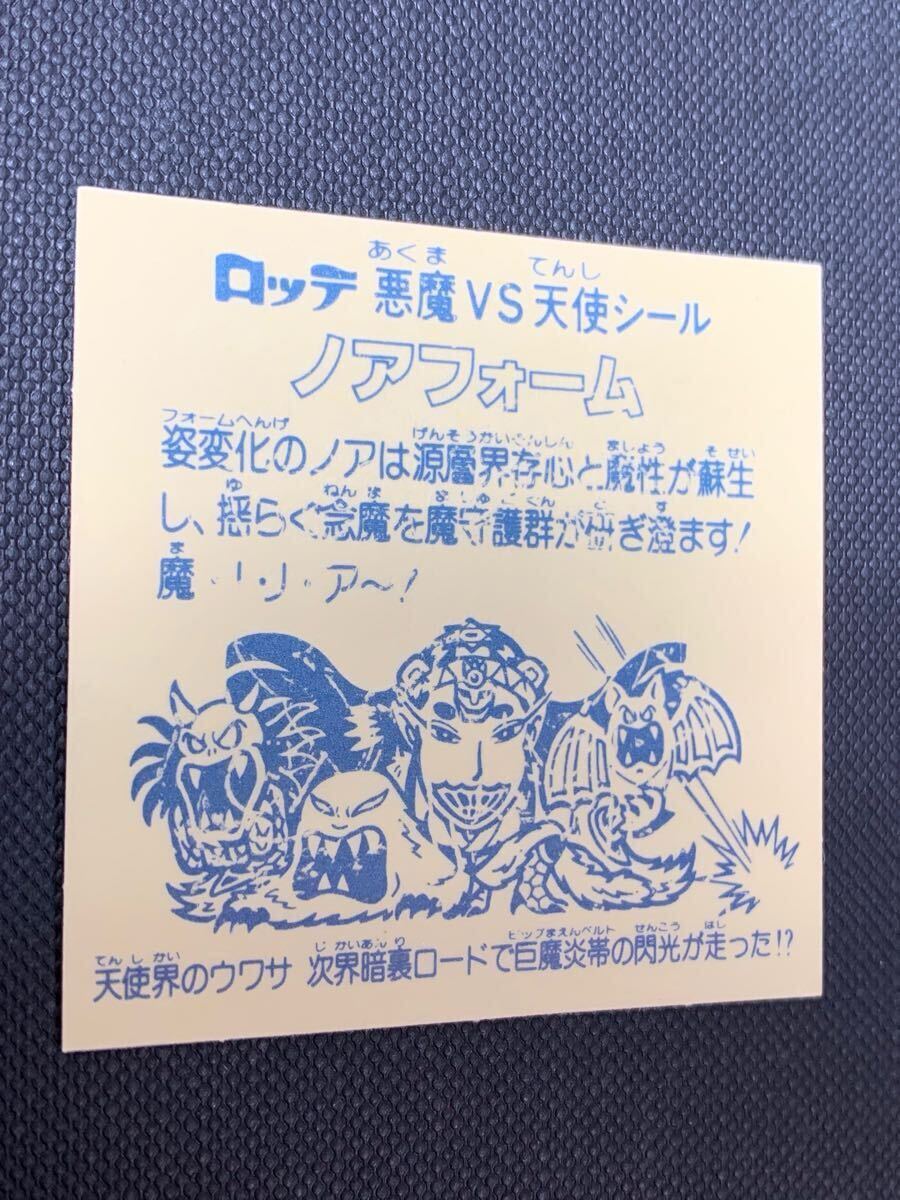 あくま てんし
ロッテ 悪魔VS天使シール
ノアフォーム
フォームへんげ げんそうかいぞんしん ましょう そせい
姿変化のノアは源層界存心と魔性が蘇生
ゆ ねんま ましゅごぐん と す
し、揺らぐ念魔を魔守護群が研ぎ澄ます!
ま
魔・リ・ア〜!
てんしかい じかいあんり ビップまえんベルト せんこう はし
天使界のウワサ 次界暗裏ロードで巨魔炎帯の閃光が走った!?